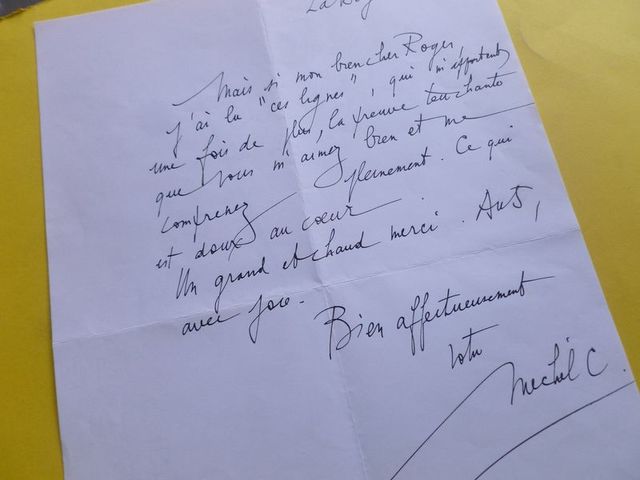 Mais si mon bien cher Roger
j'ai lu "ces lignes", qui m'apportent
une fois de plus, la preuve touchante
que vous m'aimez bien et me
comprenez pleinement. Ce qui
est doux au cœur.
Un grand et chaud merci.
avec joie.
Bien affectueusement
votre
Michel C.